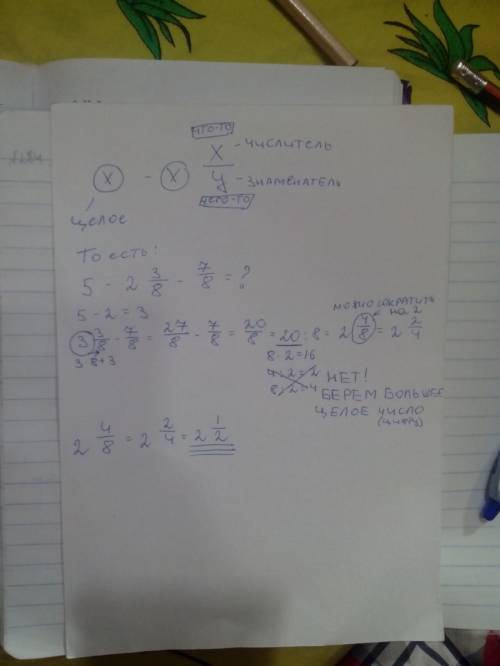 ЧТО-ТО
X - ЧИСЛИТЕЛЬ
X - X
y - ЗНАМЕНАТЕЛЬ
ЦЕЛОЕ ЧЕГО-ТО
ТО есть!
5 - 2 3/8 - 7/8 = ?
5 - 2 = 3
МОЖНО СОКРАТИТЬ
НА 2
3 3/8 - 7/8 = 27/8 - 7/8 = 20/8 = 20 : 8 = 2 4/8 = 2 2/4
3·8+3 8·2=16
4:2=2 НЕТ!
8:2=4 БЕРЕМ БОЛЬШЕЕ
ЦЕЛОЕ ЧИСЛО
2 4/8 = 2 2/4 = 2 1/2